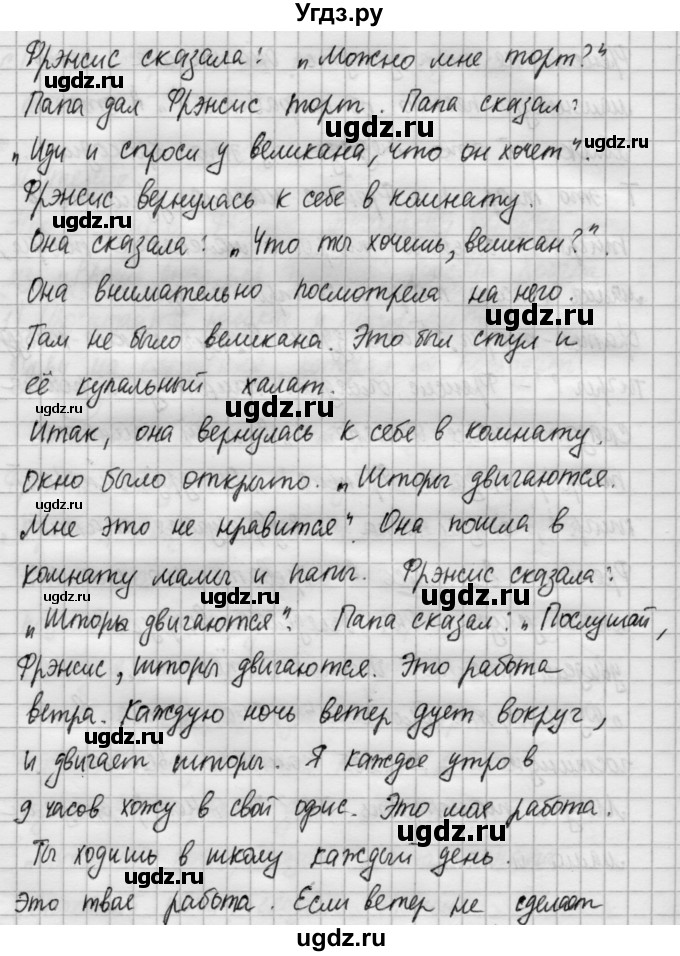 Угдз.ру
Фрэнсис сказала: „Можно мне торт?"
ugdz.ru ugdz.ru
Папа дал Фрэнсис торт. Папа сказал:
ugdz.ru ugdz.ru
„Иди и спроси у великана, что он хочет".
Фрэнсис вернулась к себе в комнату.
ugdz.ru
Она сказала: „Что ты хочешь, великан?".
Она внимательно посмотрела на него.
ugdz.ru ugdz.ru
Там не было великана. Это был стул и
её купальный халат.
ugdz.ru
Итак, она вернулась к себе в комнату.
Окно было открыто. „Шторы двигаются.
ugdz.ru
Мне это не нравится". Она пошла в
комнату мамы и папы. Фрэнсис сказала:
ugdz.ru ugdz.ru
„Шторы двигаются". Папа сказал: „Послушай,
Фрэнсис, шторы двигаются. Это работа
ветра. Каждую ночь ветер дует вокруг,
ugdz.ru
и двигает шторы. Я каждое утро в
9 часов хожу в свой офис. Это моя работа.
ugdz.ru
Ты ходишь в школу каждый день.
ugdz.ru
Это твоя работа. Если ветер не сделает
ugdz.ru